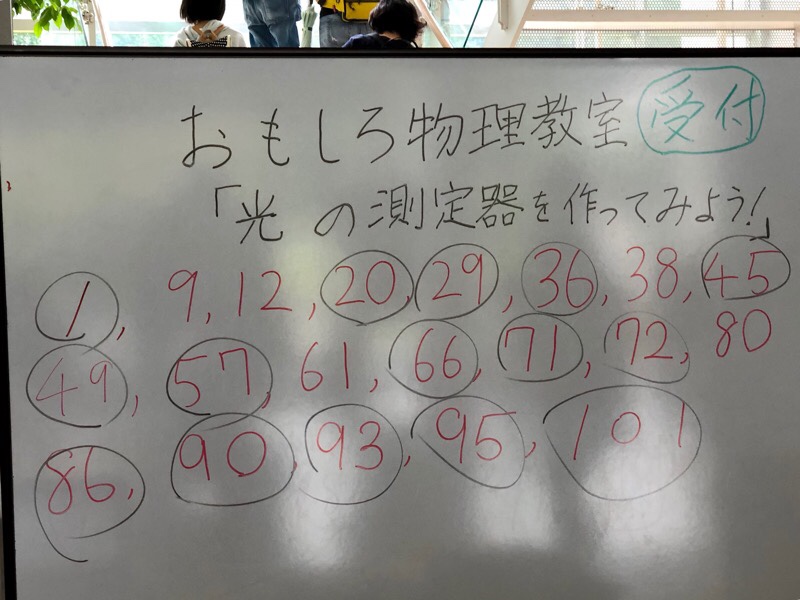 おもしろ物理教室 受付
「光の測定器を作ってみよう!」
1, 9, 12, 20, 29, 36, 38, 45
49, 57, 61, 66, 71, 72, 80
86, 90, 93, 95, 101